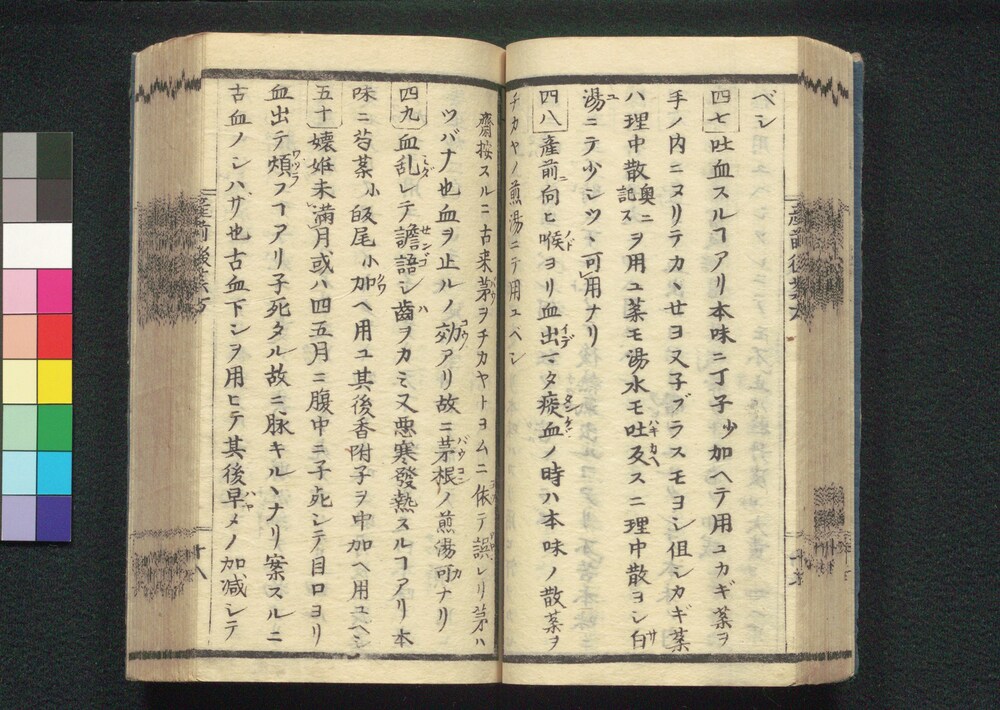 ベシ
四七 吐血スルヿアリ本味ニ丁子少加ヘテ用ユカギ薬ヲ
手ノ内ニヌリテカヽセヨ又子ブラスモヨシ伹シカギ薬
ハ理中散奥ニ記スヲ用ユ薬モ湯水モ吐及スニ理中散ヨシ白
湯ニテ少シツヽ可用ナリ
四八 産前向ヒ喉ヨリ血出マタ痰血ノ時ハ本味ノ散薬ヲ
チカヤノ煎湯ニテ用ユベシ
齋按スルニ古来茅ヲチカヤトヨムニ依テ誤レリ茅ハ
ツバナ也血ヲ止ルノ効アリ故ニ茅根ノ煎湯可ナリ
四九 血乱レテ譫語シ歯ヲカミ又悪寒發熱スルヿアリ本
味ニ芎薬小皈尾小加ヘ用ユ其後香附子ヲ中加ヘ用ユヘシ
五十 孃姙未満月或ハ四五月ニ腹中ニ子死シテ目口ヨリ
血出テ煩フヿアリ子死タル故ニ脉キルヽナリ案スルニ
古血ノシハザ也古血下シヲ用ヒテ其後早メノ加減シテ
産前後薬方
十八